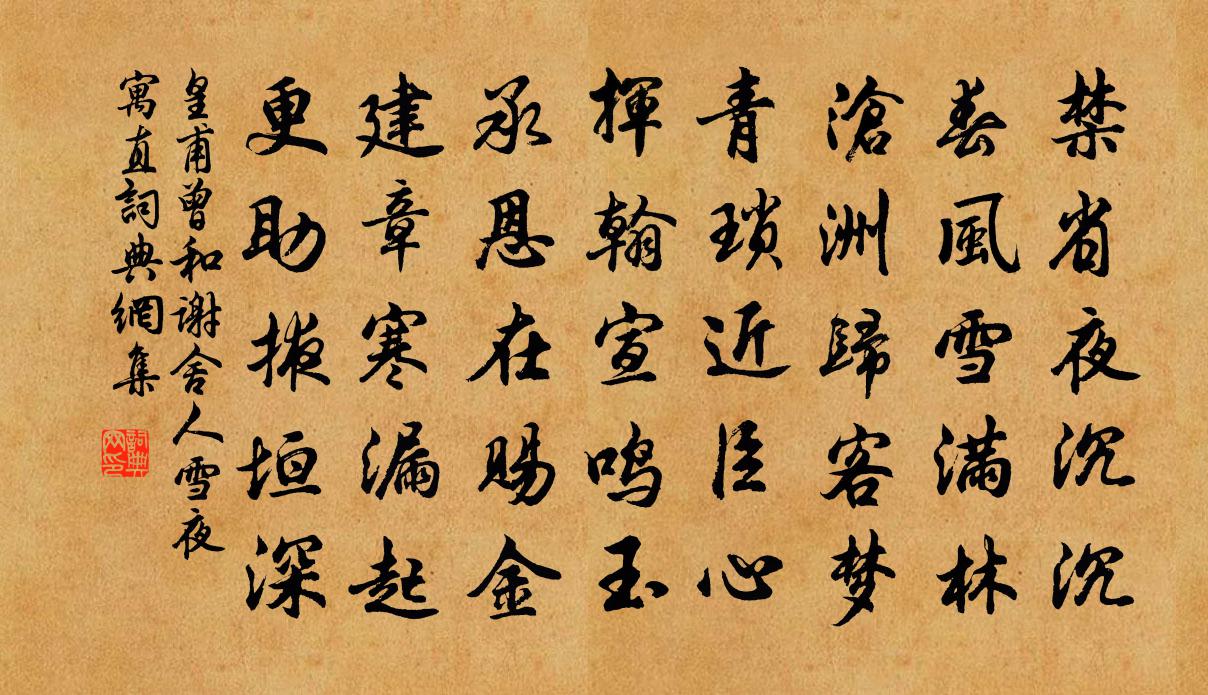 禁省夜沉沉
春風雪满林
滄洲歸客梦
青琐近臣心
揮翰宣鸣玉
承恩在賜金
建章寒漏起
更助掖垣深
皇甫曾和谢舍人雪夜
寓直詞典網集
詞典